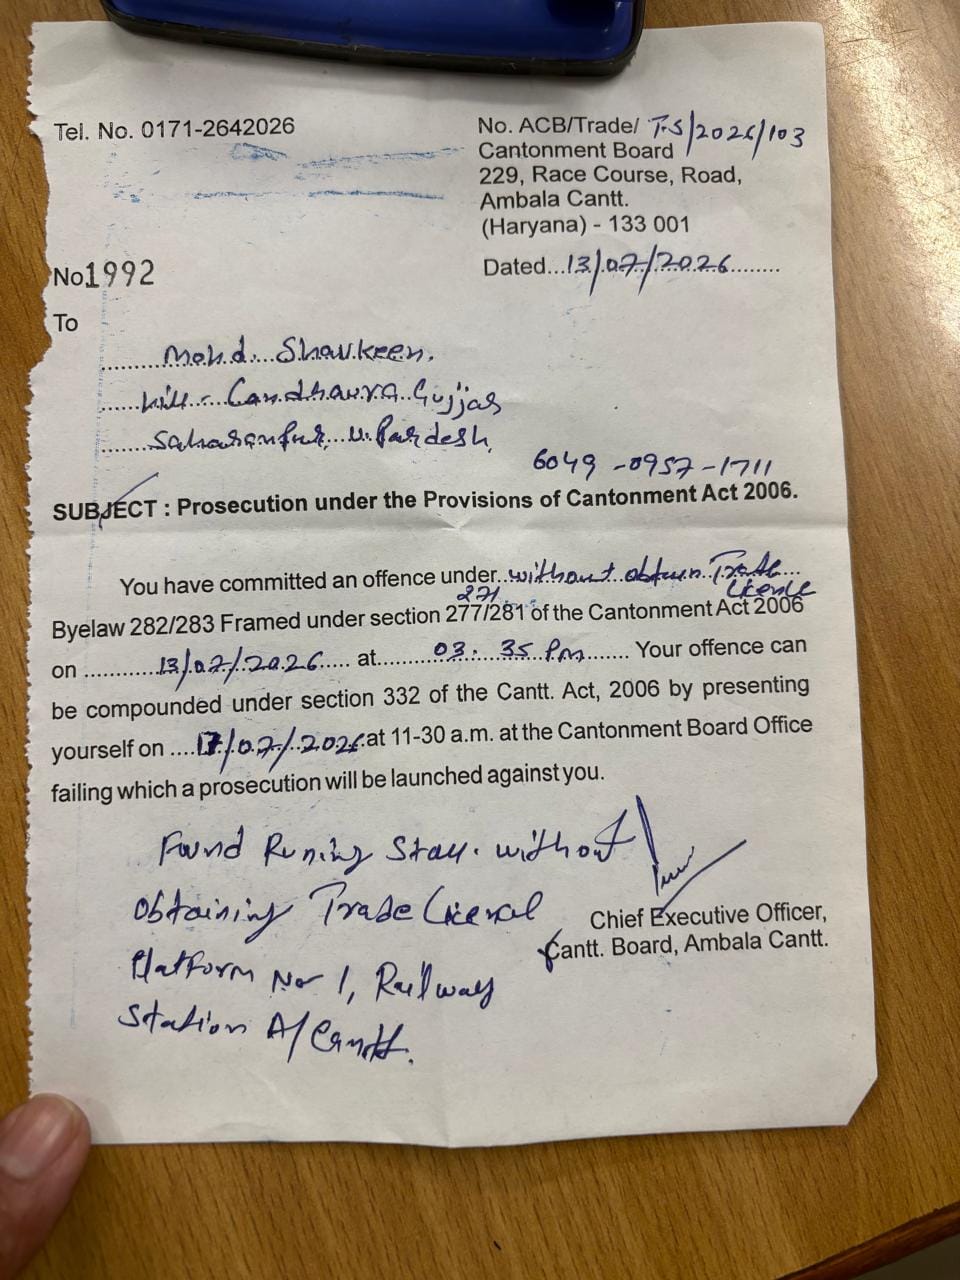 Tel. No. 0171-2642026
No. ACB/Trade/ T.S/2026/103
Cantonment Board
229, Race Course, Road,
Ambala Cantt.
(Haryana) - 133 001
No1992
Dated...13/07/2026........
To
Mohd. Shavkeen.
Vill - Gandhawra Gujjar
Saharanpur, U. Pardesh,
6049 -0957-1711
SUBJECT : Prosecution under the Provisions of Cantonment Act 2006.
You have committed an offence under..without obtain Trade
Licence
271
Byelaw 282/283 Framed under section 277/281 of the Cantonment Act 2006
on ............13/07/2026..... at.........03: 35 Pm....... Your offence can
be compounded under section 332 of the Cantt. Act, 2006 by presenting
yourself on ....17/07/2026.at 11-30 a.m. at the Cantonment Board Office
failing which a prosecution will be launched against you.
Found Runing Stall. without
obtaining Trade
Platform No 1, Railway
Station A/Cantt.
Chief Executive Officer,
Cantt. Board, Ambala Cantt.